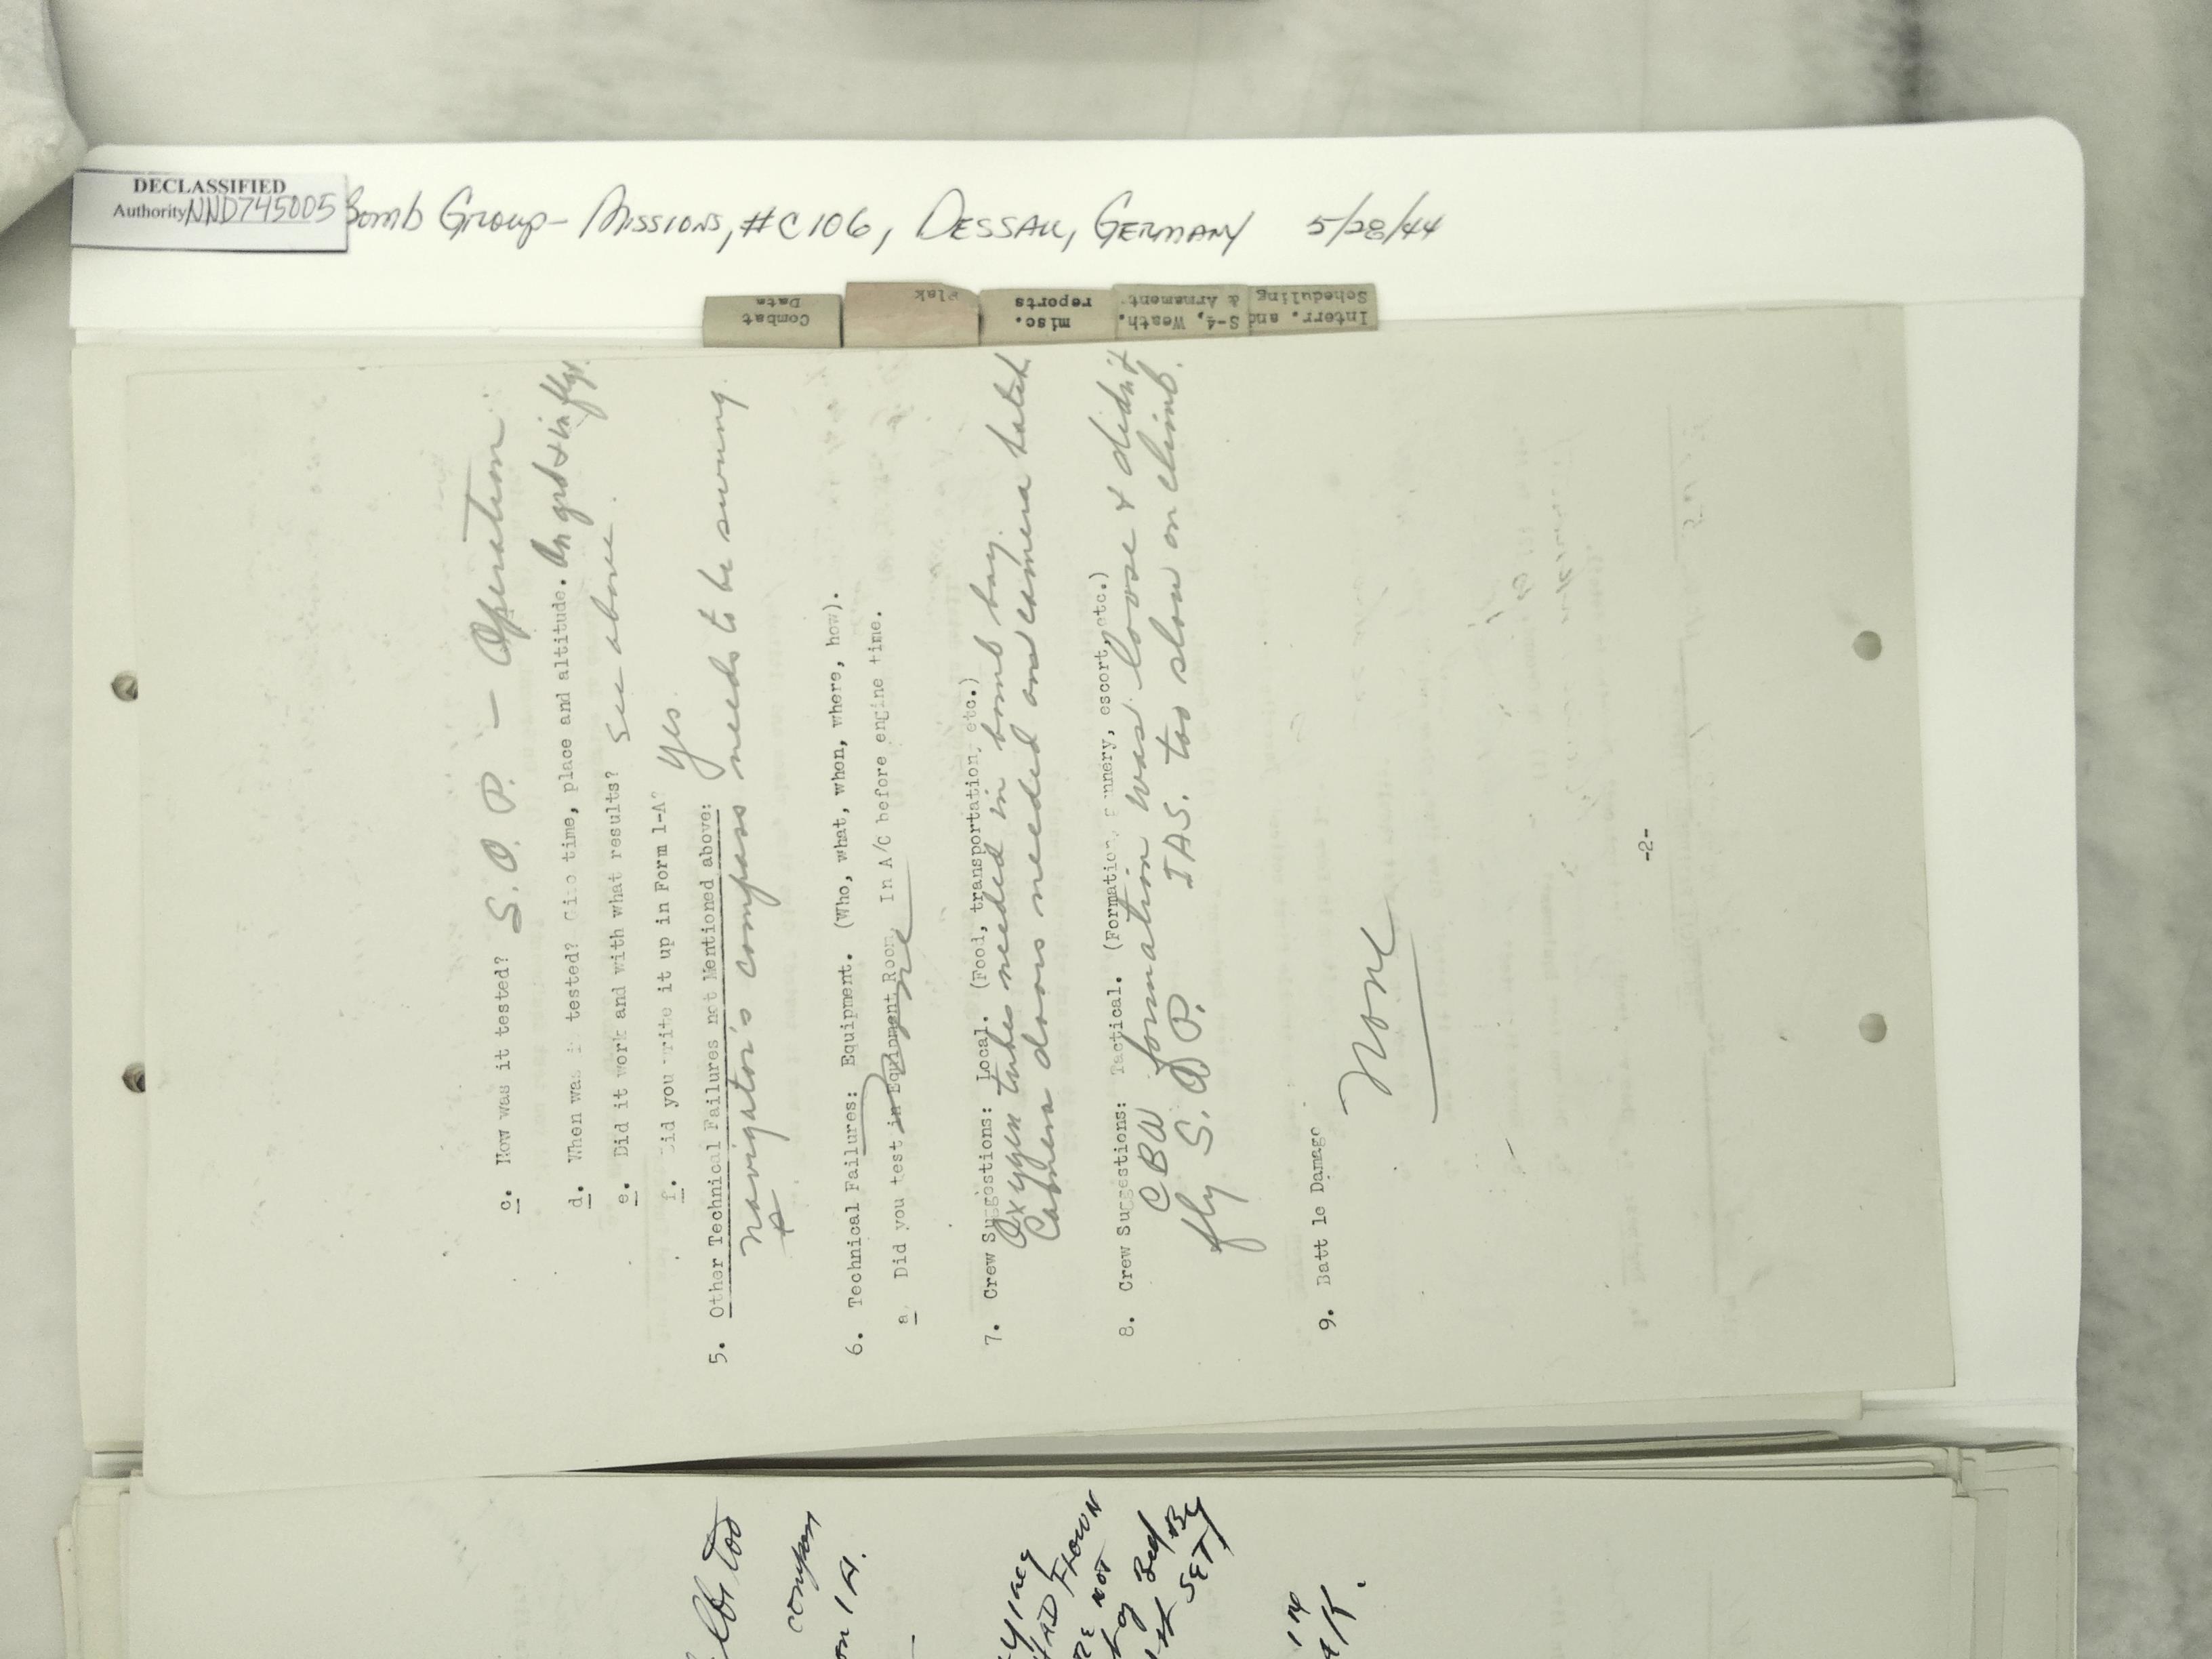 DECLASSIFIED
Authority NND745005
Bomb Group - Missions, #C106, Dessau, Germany 5/28/44
Combat
Data
Flak
misc.
reports
S-4, Weath.
& Armament
Interr. and
Scheduling
c. How was it tested? S.O.P. - Operation
d. When was it tested? Cite time, place and altitude. On grd & in flgt.
e. Did it work and with what results? See above.
f. Did you write it up in Form 1-A? Yes
5. Other Technical Failures not Mentioned above:
Navigator's compass needs to be swung.
6. Technical Failures: Equipment. (Who, what, when, where, how).
a. Did you test in Equipment Room, In A/C before engine time.
7. Crew Suggestions: Local. (Food, transportation, etc.)
Oxygen tubes needed in bomb bay.
Camera doors needed on camera hatch
8. Crew Suggestions: Tactical. (Formation, gunnery, escort, etc.)
CBW formation was loose & didn't
fly S.O.P. IAS. too slow on climb.
9. Batt le Damage
None
-2-
too
compass
on 1A.
HAD FLOWN
NOT
SET